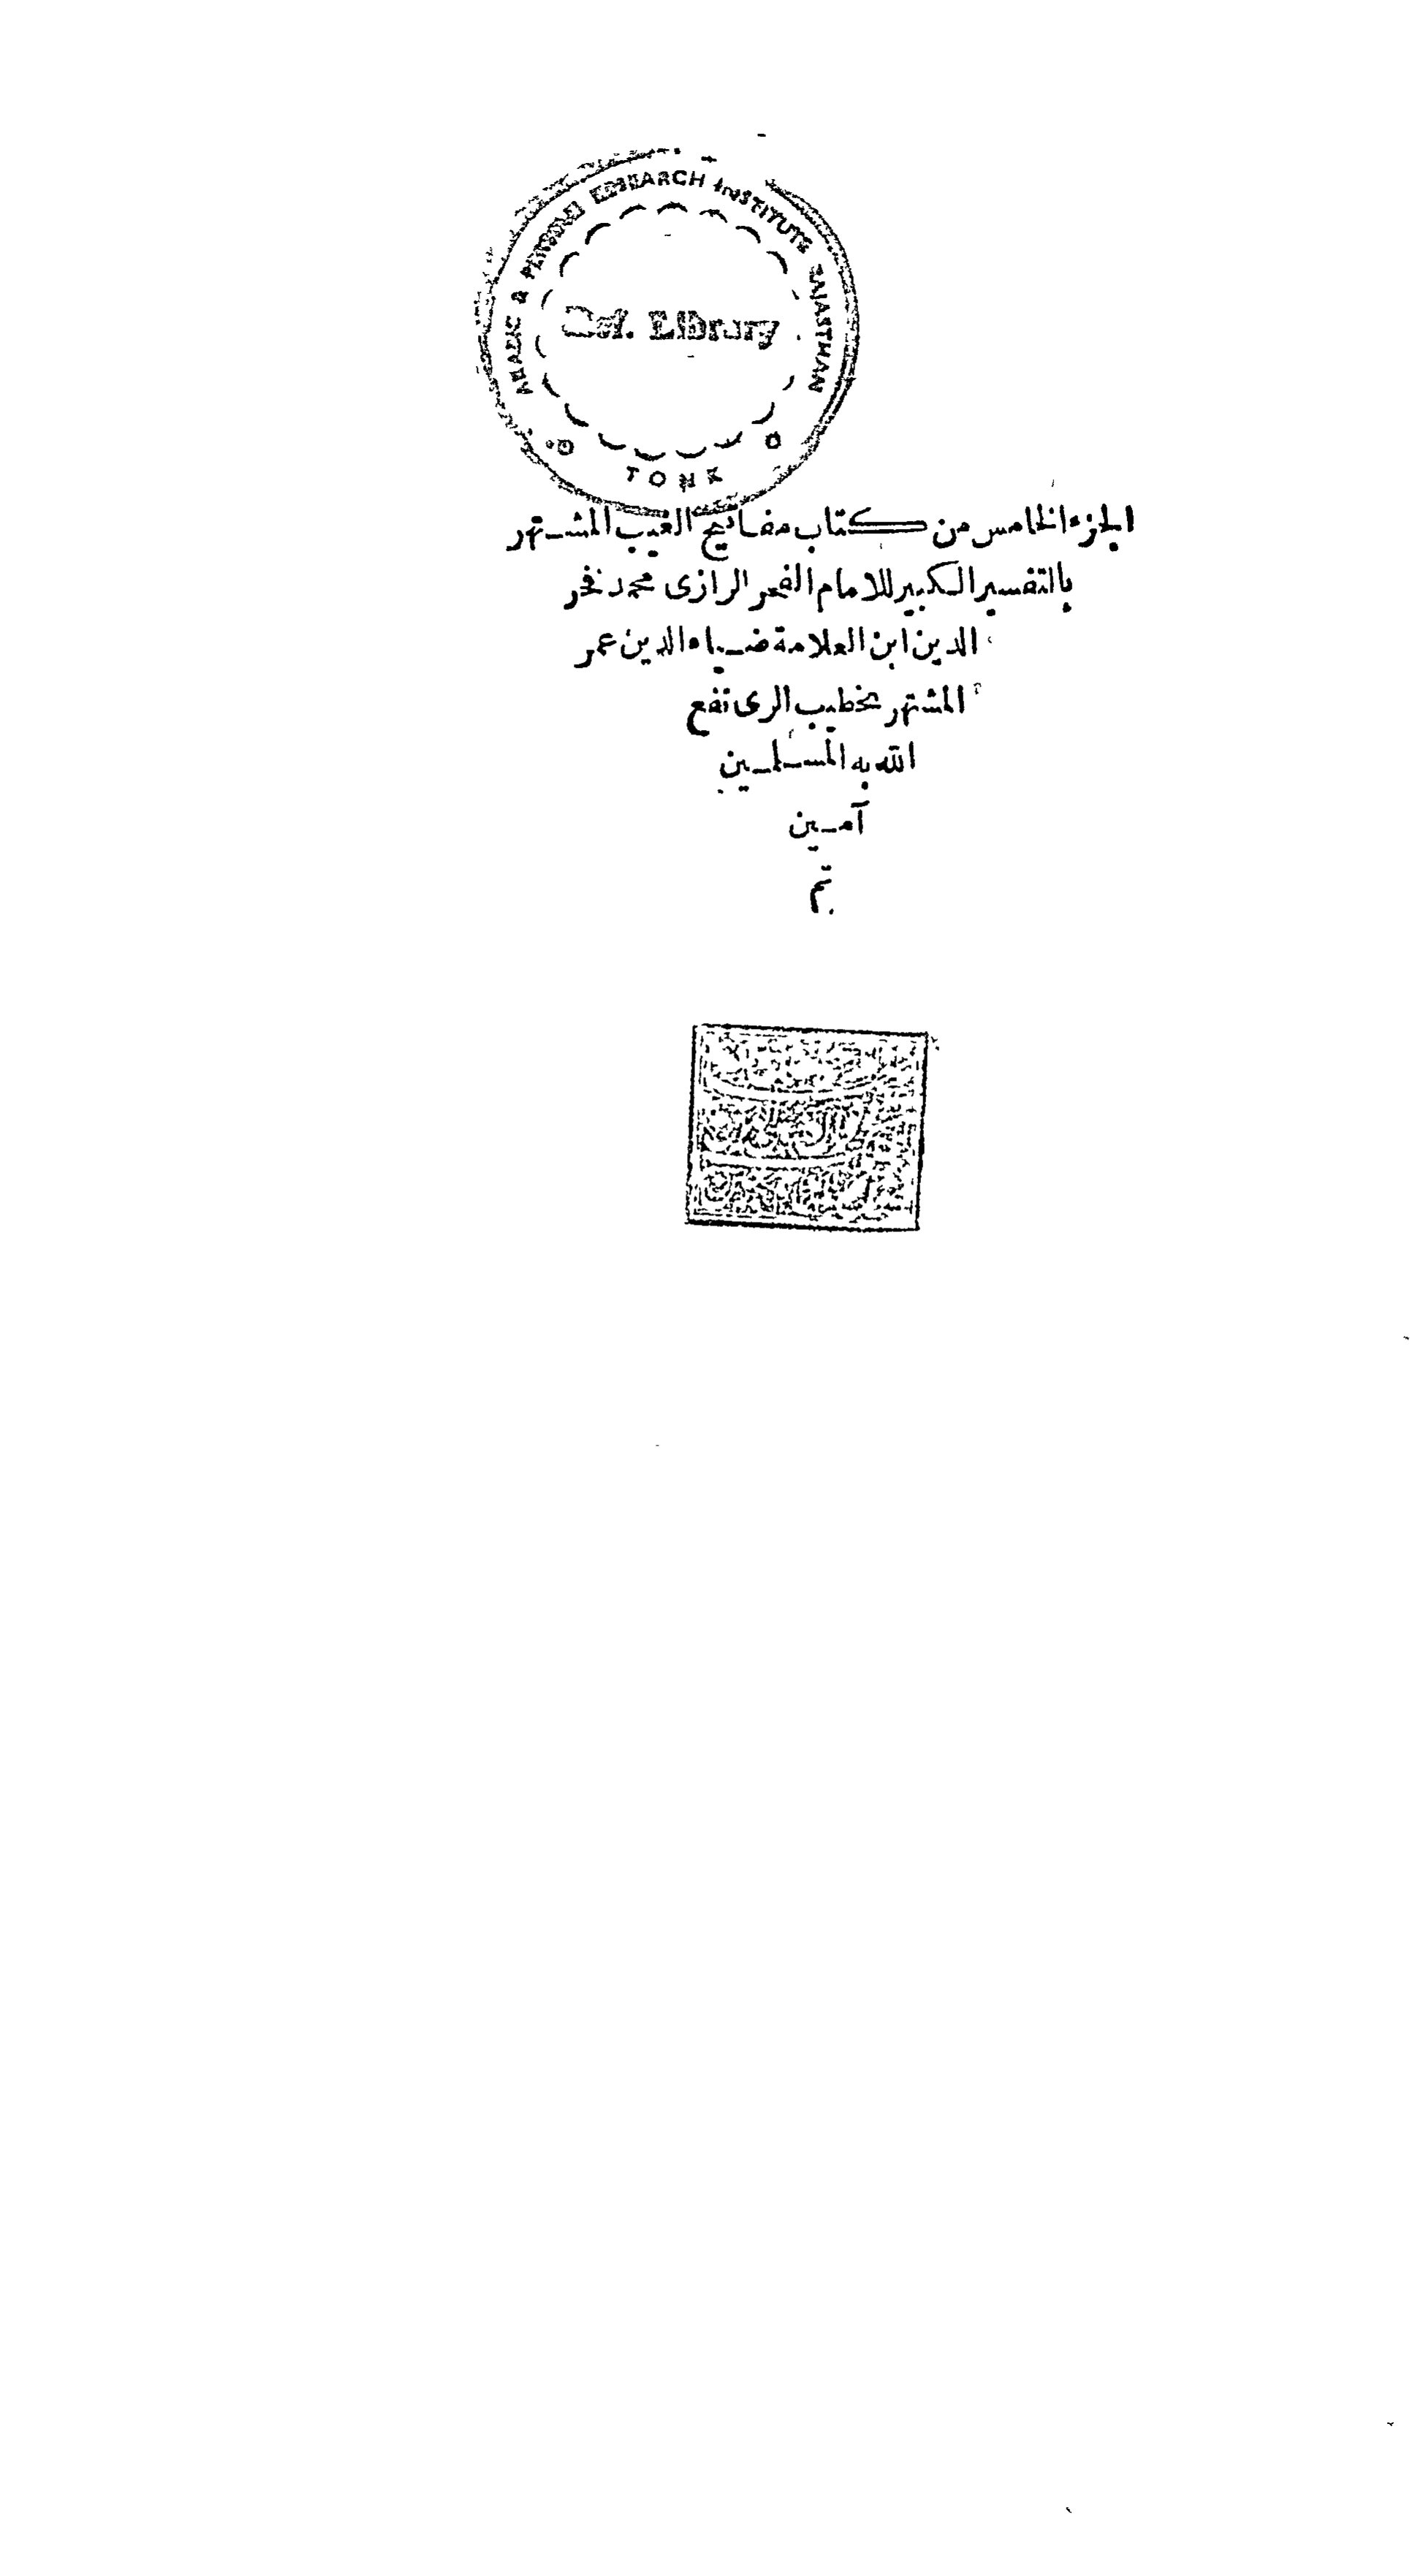 ARABIC & PERSIAN RESEARCH INSTITUTE RAJASTHAN
Library
TONK
الجزء الخامس من كتاب مفاتيح الغيب المشتهر
بالتفسير الكبير للامام الفخر الرازى محمد فخر
الدين ابن العلامة ضياء الدين عمر
المشتهر بخطيب الرى نفع
الله به المسلمين
آمين
تم